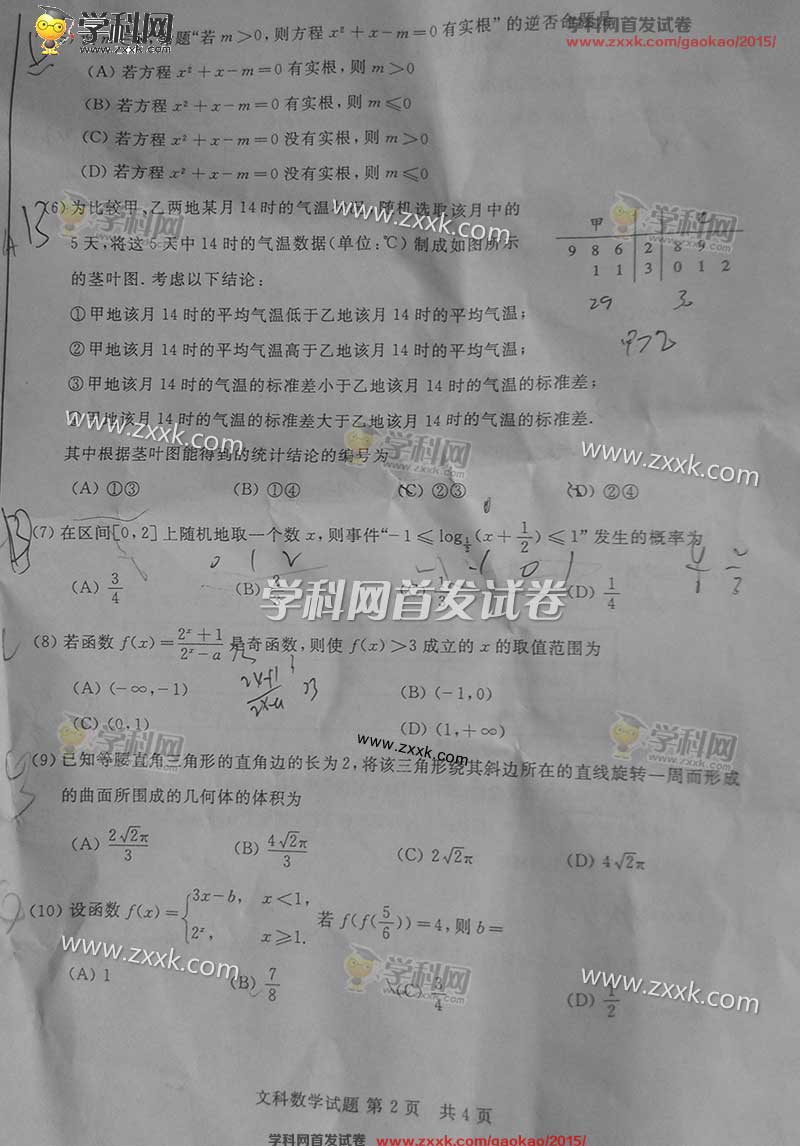 学科网
www.zxxk.com
学科网首发试卷
www.zxxk.com/gaokao/2015/
题“若m>0,则方程x²+x-m=0有实根”的逆否命题是
(A) 若方程x²+x-m=0有实根,则m>0
(B) 若方程x²+x-m=0有实根,则m≤0
(C) 若方程x²+x-m=0没有实根,则m>0
(D) 若方程x²+x-m=0没有实根,则m≤0
(6) 为比较甲、乙两地某月14时的气温 随机选取该月中的
5天,将这5天中14时的气温数据(单位:℃)制成如图所示
的茎叶图. 考虑以下结论:
甲
9 8 6 2 8 9
1 1 3 0 1 2
29
甲>乙
①甲地该月14时的平均气温低于乙地该月14时的平均气温;
②甲地该月14时的平均气温高于乙地该月14时的平均气温;
③甲地该月14时的气温的标准差小于乙地该月14时的气温的标准差;
甲地该月14时的气温的标准差大于乙地该月14时的气温的标准差.
其中根据茎叶图能得到的统计结论的编号为
(A) ①③ (B) ①④ (C) ②③ (D) ②④
(7) 在区间[0,2]上随机地取一个数x,则事件“-1≤log_{1/2}(x+1/2)≤1”发生的概率为
(A) 3/4 (B) (C) 1/3 (D) 1/4
学科网首发试卷
(8) 若函数f(x)=(2ˣ+1)/(2ˣ-a)是奇函数,则使f(x)>3成立的x的取值范围为
(A) (-∞,-1) (B) (-1,0)
(C) (0,1) (D) (1,+∞)
(9) 已知等腰直角三角形的直角边的长为2,将该三角形绕其斜边所在的直线旋转一周而形成
的曲面所围成的几何体的体积为
(A) 2√2π/3 (B) 4√2π/3 (C) 2√2π (D) 4√2π
(10) 设函数f(x)={3x-b, x<1,
2ˣ, x≥1.
若f(f(5/6))=4,则b=
(A) 1 (B) 7/8 (C) 3/4 (D) 1/2
文科数学试题 第2页 共4页
学科网首发试卷 www.zxxk.com/gaokao/2015/